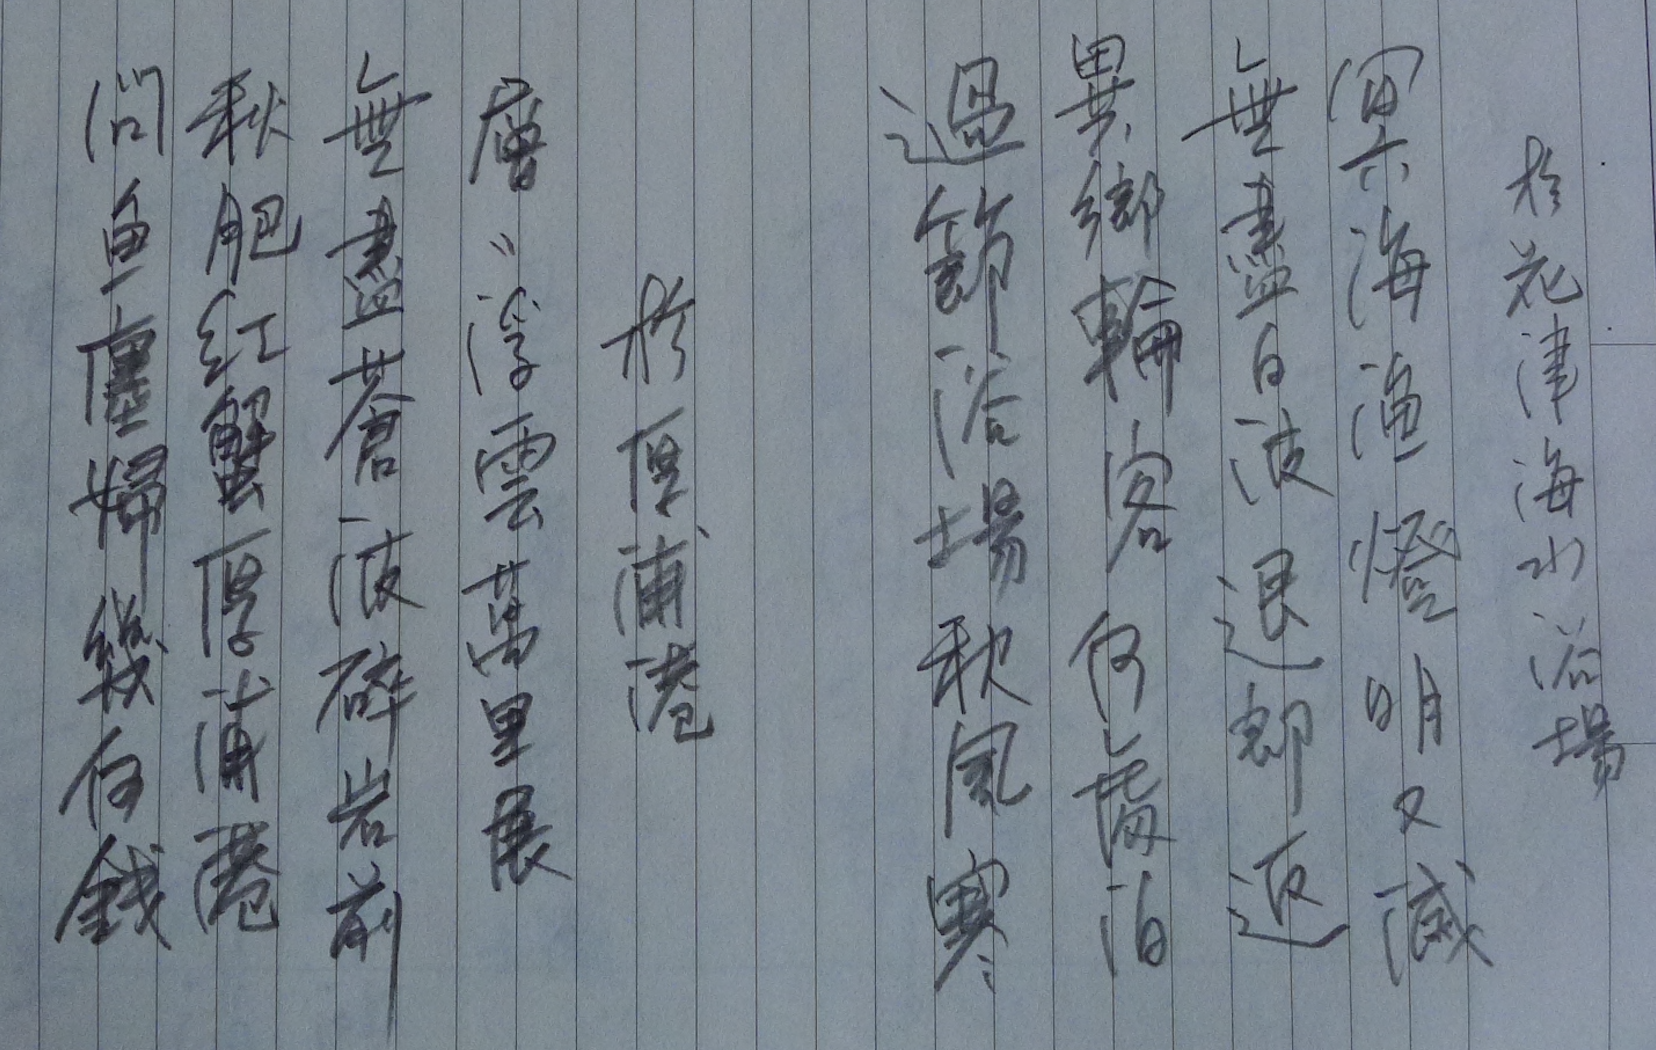 於花津海水浴場
冥冥海漁燈明又滅
無盡白波退却返
異鄉輪客何處泊
過節浴場秋風寒
於厚浦港
層〃浮雲萬里展
無盡蒼波碎岩前
秋肥紅蟹厚浦港
問魚廛婦幾何錢